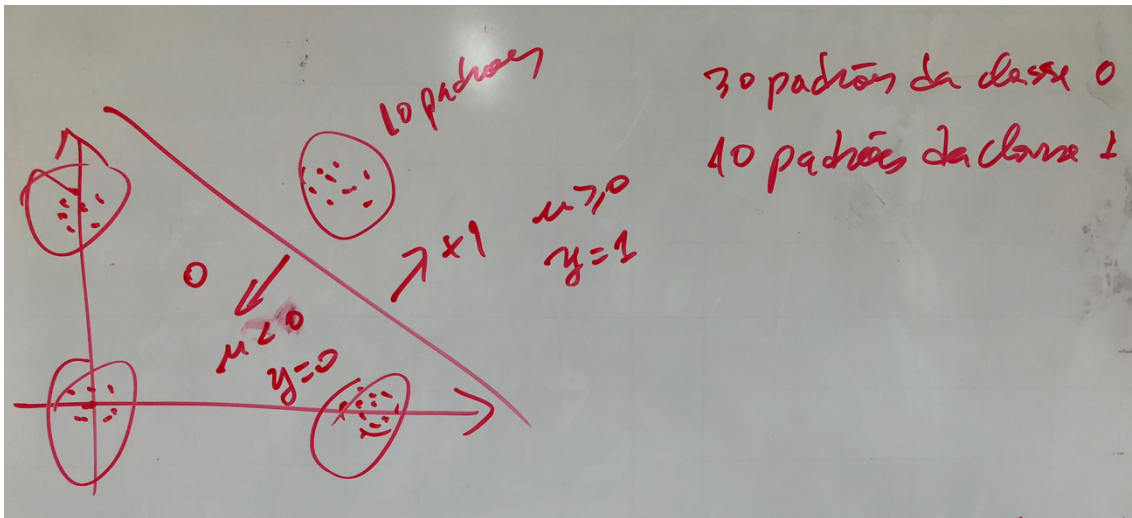 10 padrões
30 padrões da classe 0
10 padrões da classe 1
u≥0
+1
y=1
0
u<0
y=0